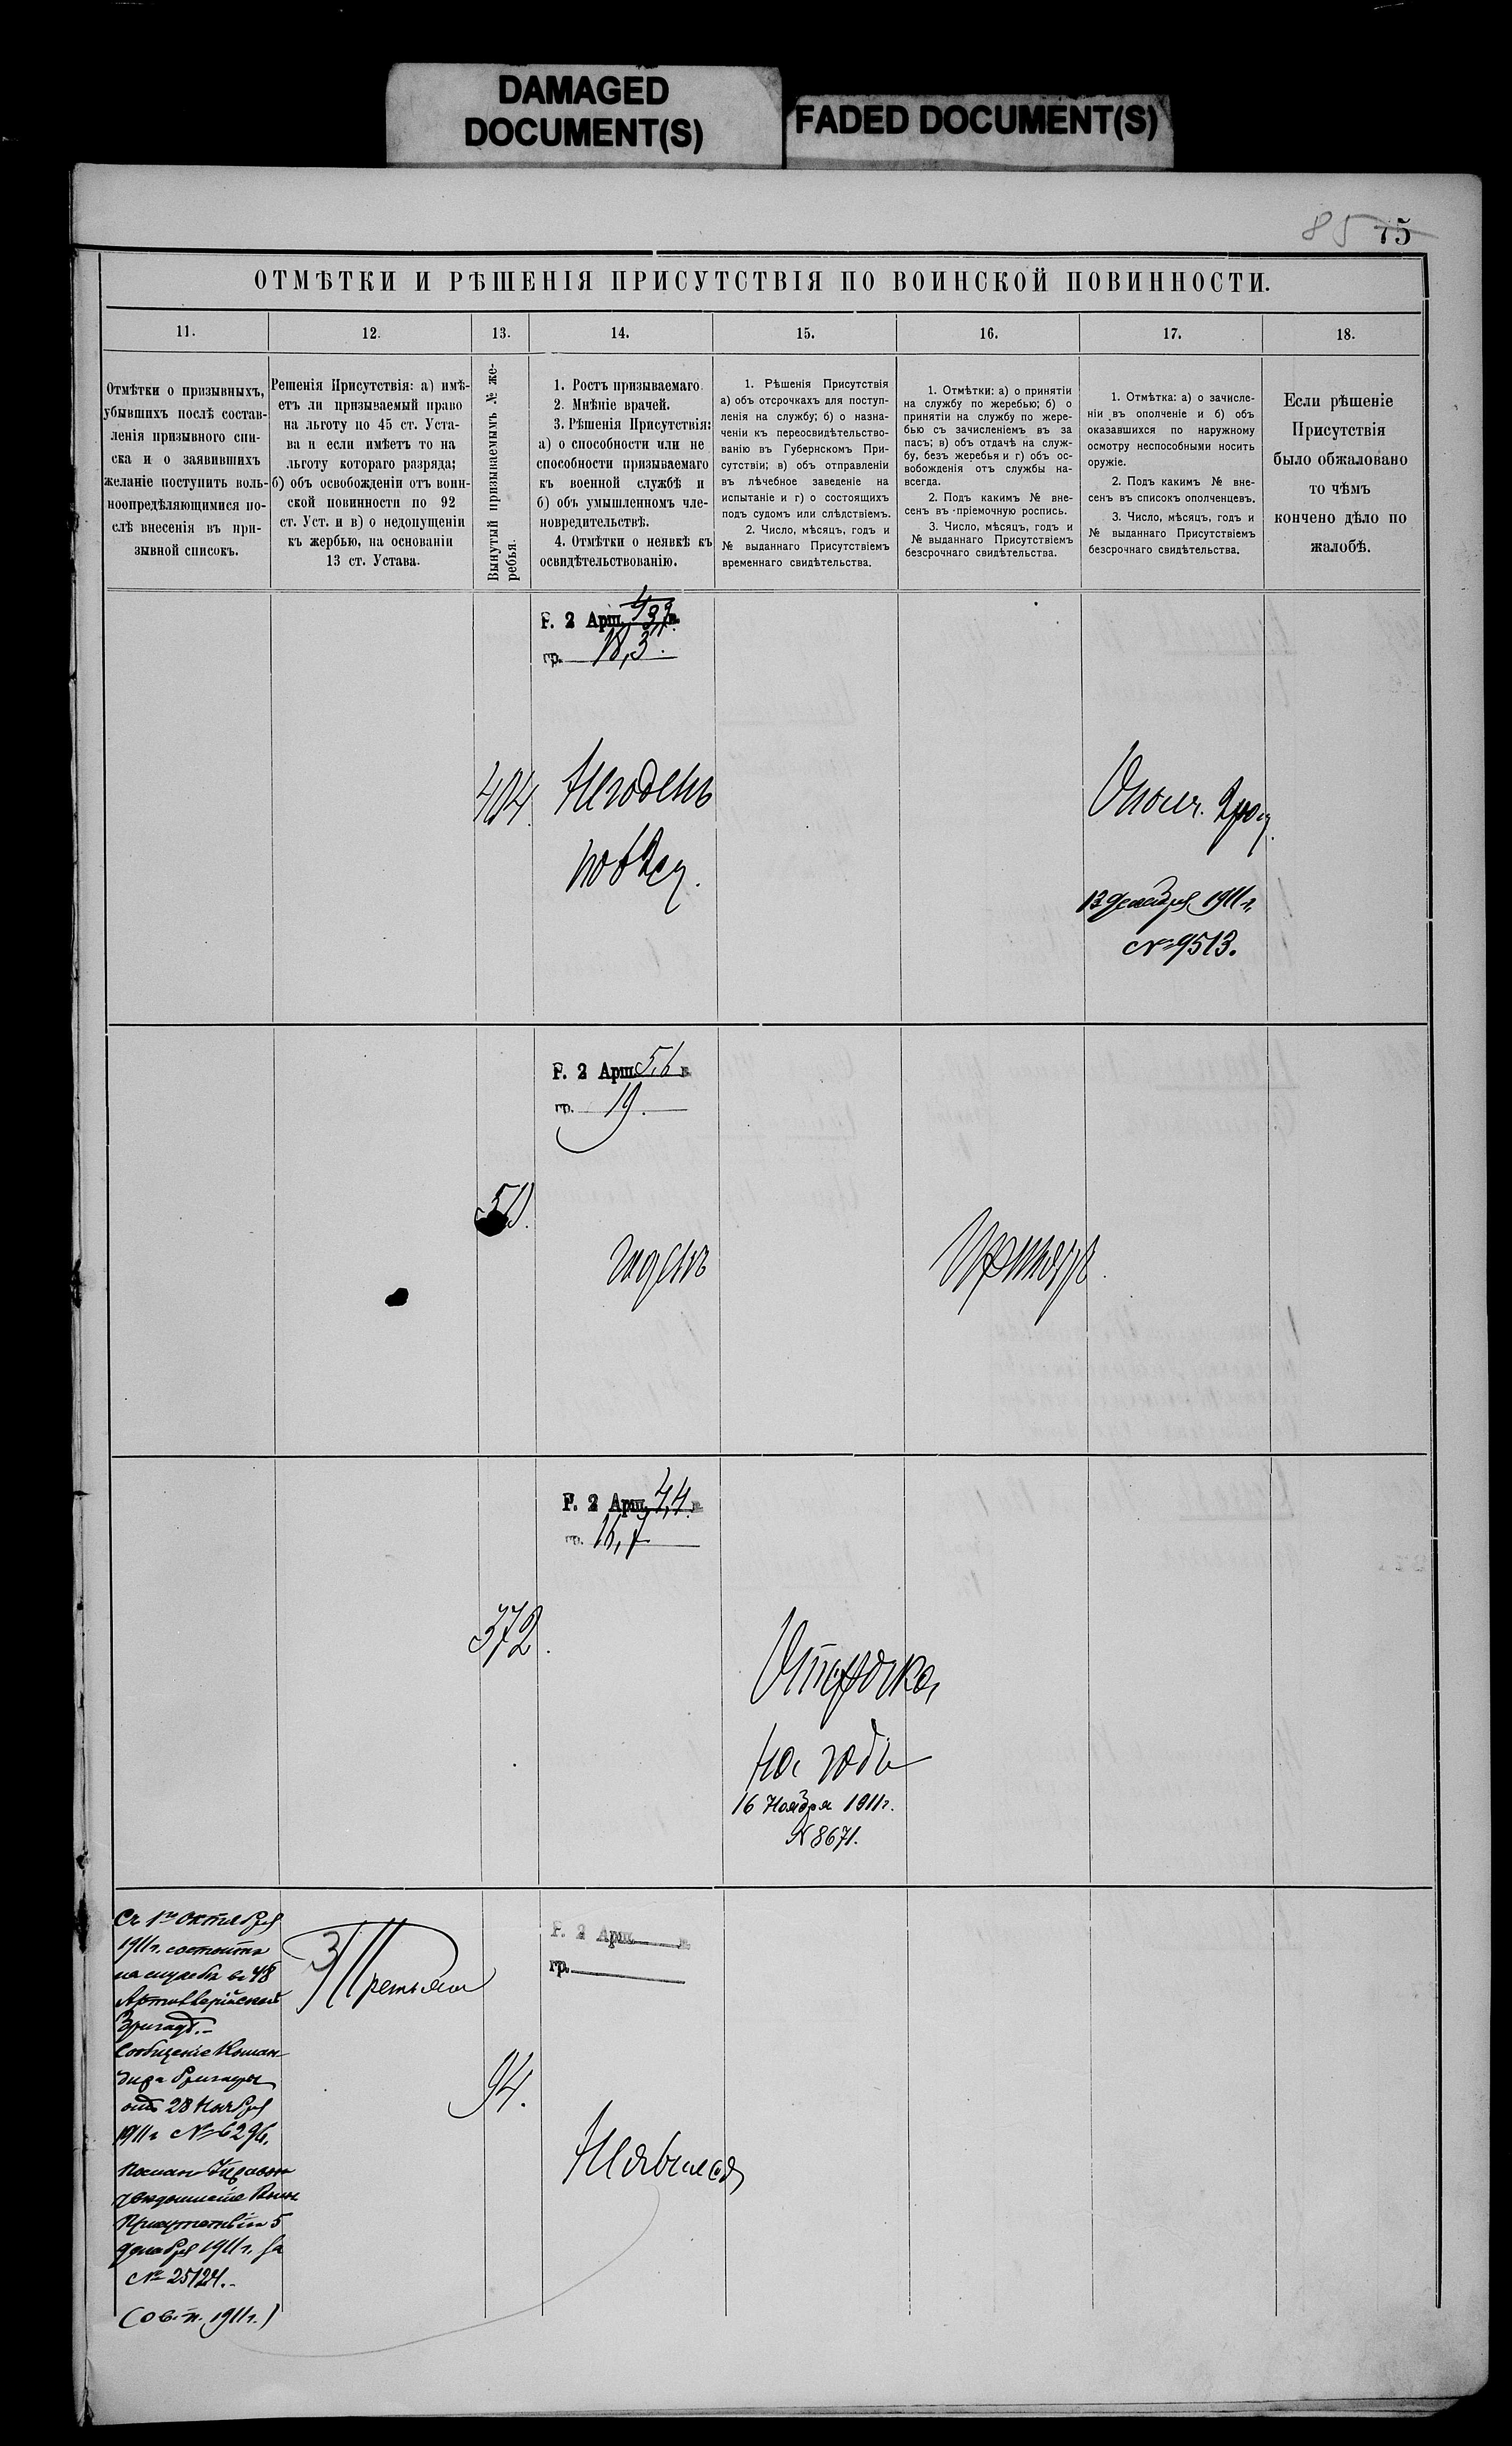 DAMAGED
DOCUMENT(S)
FADED DOCUMENT(S)
85 75
ОТМѢТКИ И РѢШЕНІЯ ПРИСУТСТВІЯ ПО ВОИНСКОЙ ПОВИННОСТИ.
11.
12.
13.
14.
15.
16.
17.
18.
Отмѣтки о призывныхъ,
убывшихъ послѣ состав-
ленія призывного спи-
ска и о заявившихъ
желаніе поступить воль-
ноопредѣляющимися по-
слѣ внесенія въ при-
зывной списокъ.
Решенія Присутствія: а) имѣ-
етъ ли призываемый право
на льготу по 45 ст. Уста-
ва и если имѣетъ то на
льготу котораго разряда;
б) объ освобожденіи отъ воин-
ской повинности по 92
ст. Уст. и в) о недопущеніи
къ жербью, на основаніи
13 ст. Устава.
Вынутый призываемымъ № же-
ребья.
1. Ростъ призываемаго.
2. Мнѣніе врачей.
3. Рѣшенія Присутствія:
а) о способности или не
способности призываемаго
къ военной службѣ и
б) объ умышленномъ чле-
новредительствѣ.
4. Отмѣтки о неявкѣ къ
освидѣтельствованію.
1. Рѣшенія Присутствія
а) объ отсрочкахъ для поступ-
ленія на службу; б) о назна-
ченіи къ переосвидѣтельство-
ванію въ Губернскомъ При-
сутствіи; в) объ отправленіи
въ лѣчебное заведеніе на
испытаніе и г) о состоящихъ
подъ судомъ или слѣдствіемъ.
2. Число, мѣсяцъ, годъ и
№ выданнаго Присутствіемъ
временнаго свидѣтельства.
1. Отмѣтки: а) о принятіи
на службу по жеребью; б) о
принятіи на службу по жере-
бью съ зачисленіемъ въ за
пасъ; в) объ отдачѣ на служ-
бу, безъ жеребья и г) объ ос-
вобожденія отъ службы на-
всегда.
2. Подъ какимъ № вне-
сенъ въ -пріемочную роспись.
3. Число, мѣсяцъ, годъ и
№ выданнаго Присутствіемъ
безсрочнаго свидѣтельства.
1. Отмѣтка: а) о зачисле-
ніи въ ополченіе и б) объ
оказавшихся по наружному
осмотру неспособными носить
оружіе.
2. Подъ какимъ № вне-
сенъ въ списокъ ополченцевъ.
3. Число, мѣсяцъ, годъ и
№ выданнаго Присутствіемъ
безсрочнаго свидѣтельства.
Если рѣшеніе
Присутствія
было обжаловано
то чѣмъ
кончено дѣло по
жалобѣ.
Р. 2 Арш. в.
гр. 18,3.
404.
Негоденъ
Ополч. 2
13 Декабря 1911 г.
№ 9513.
Р. 2 Арш. 5,6 в.
гр. 19.
годенъ
Принятъ.
Р. 2 Арш. 4,4. в.
гр. 16,7
372.
Отсрочка
на годъ
16 Ноября 1911 г.
№ 8671.
Съ 1го Октября
1911 г. состоитъ
на службѣ въ 48
Артиллерійской
Бригадѣ.-
Сообщеніе Коман-
дира бригады
отъ 28 Ноября
1911 г. № 6296.
Присутствія 5
декабря 1911 г. за
№ 25124.-
(о в. п. 1911 г.)
3 Третьяго
94.
Р. 2 Арш. в.
гр.
Неявился